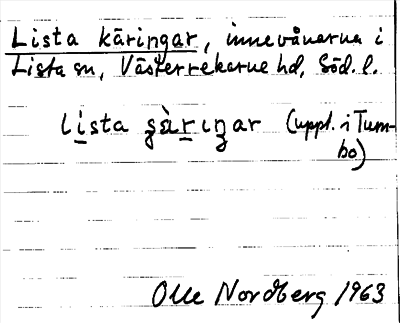 Lista käringar, innevånarna i
Lista sn, Västerrekarne hd, Söd. l.
lista çàrıŋar (uppt. i Tum-
bo)
Olle Nordberg 1963